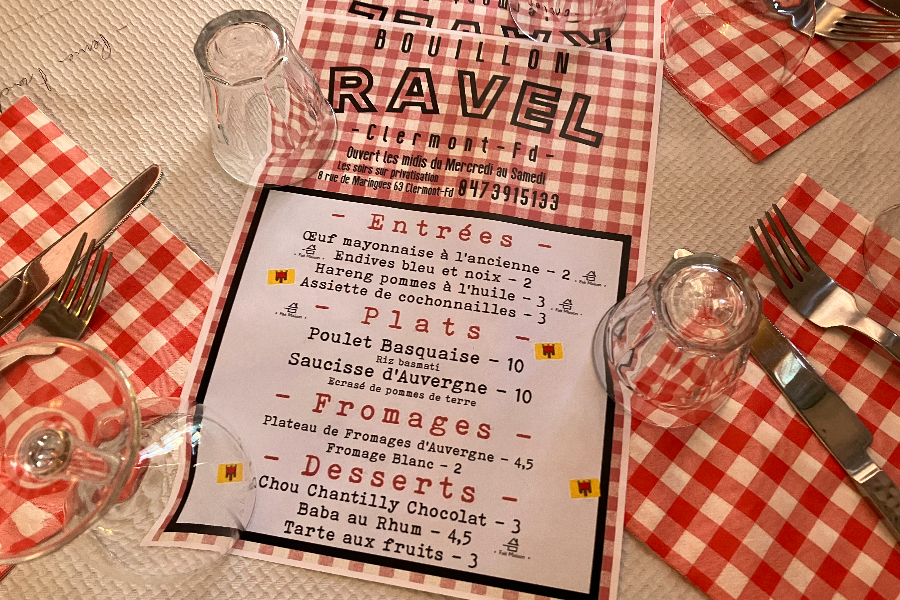 BOUILLON
RAVEL
-Clermont-Fd-
Ouvert les midis du Mercredi au Samedi
Les soirs sur privatisation
8 rue de Maringues 63 Clermont-Fd 0473915133
- Entrées -
Œuf mayonnaise à l'ancienne - 2
Endives bleu et noix - 2
Hareng pommes à l'huile - 3
Assiette de cochonnailles - 3
- Plats -
Poulet Basquaise - 10
Riz basmati
Saucisse d'Auvergne - 10
Ecrasé de pommes de terre
- Fromages -
Plateau de Fromages d'Auvergne - 4,5
Fromage Blanc - 2
- Desserts -
Chou Chantilly Chocolat - 3
Baba au Rhum - 4,5
Tarte aux fruits - 3
Fait Maison